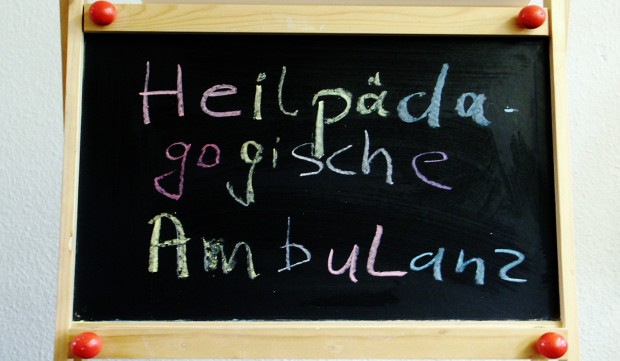 Heilpäda-
gogische
Ambulanz